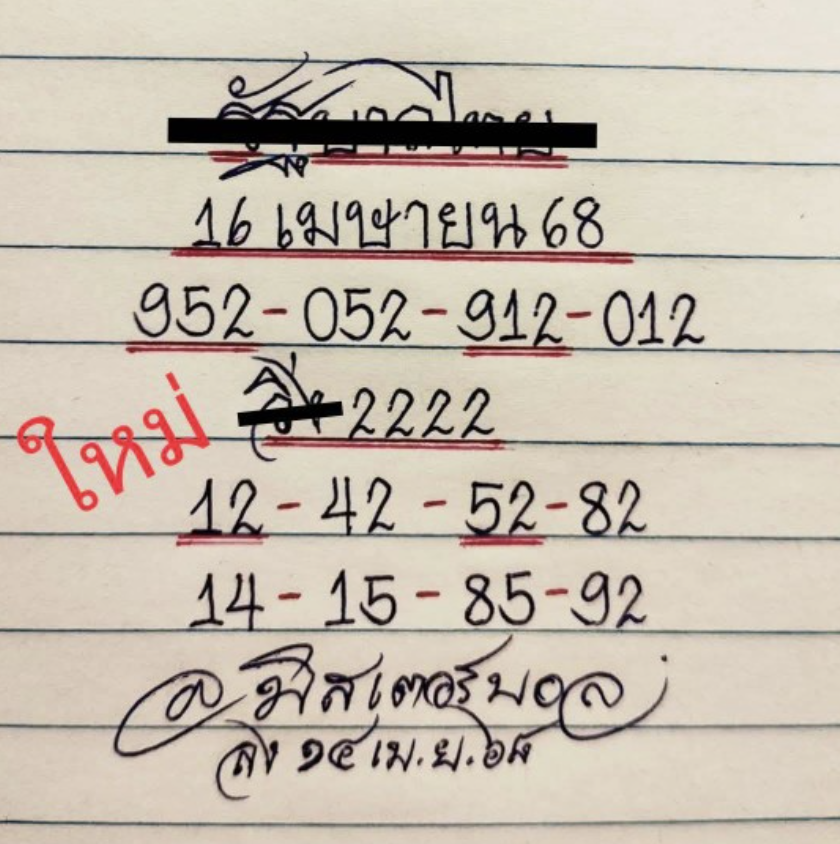 16 เมษายน 68
952-052-912-012
ใหม่
2222
12-42-52-82
14-15-85-92
มิสเตอร์บอล
ลง ๑๔ เม.ย.๖๘